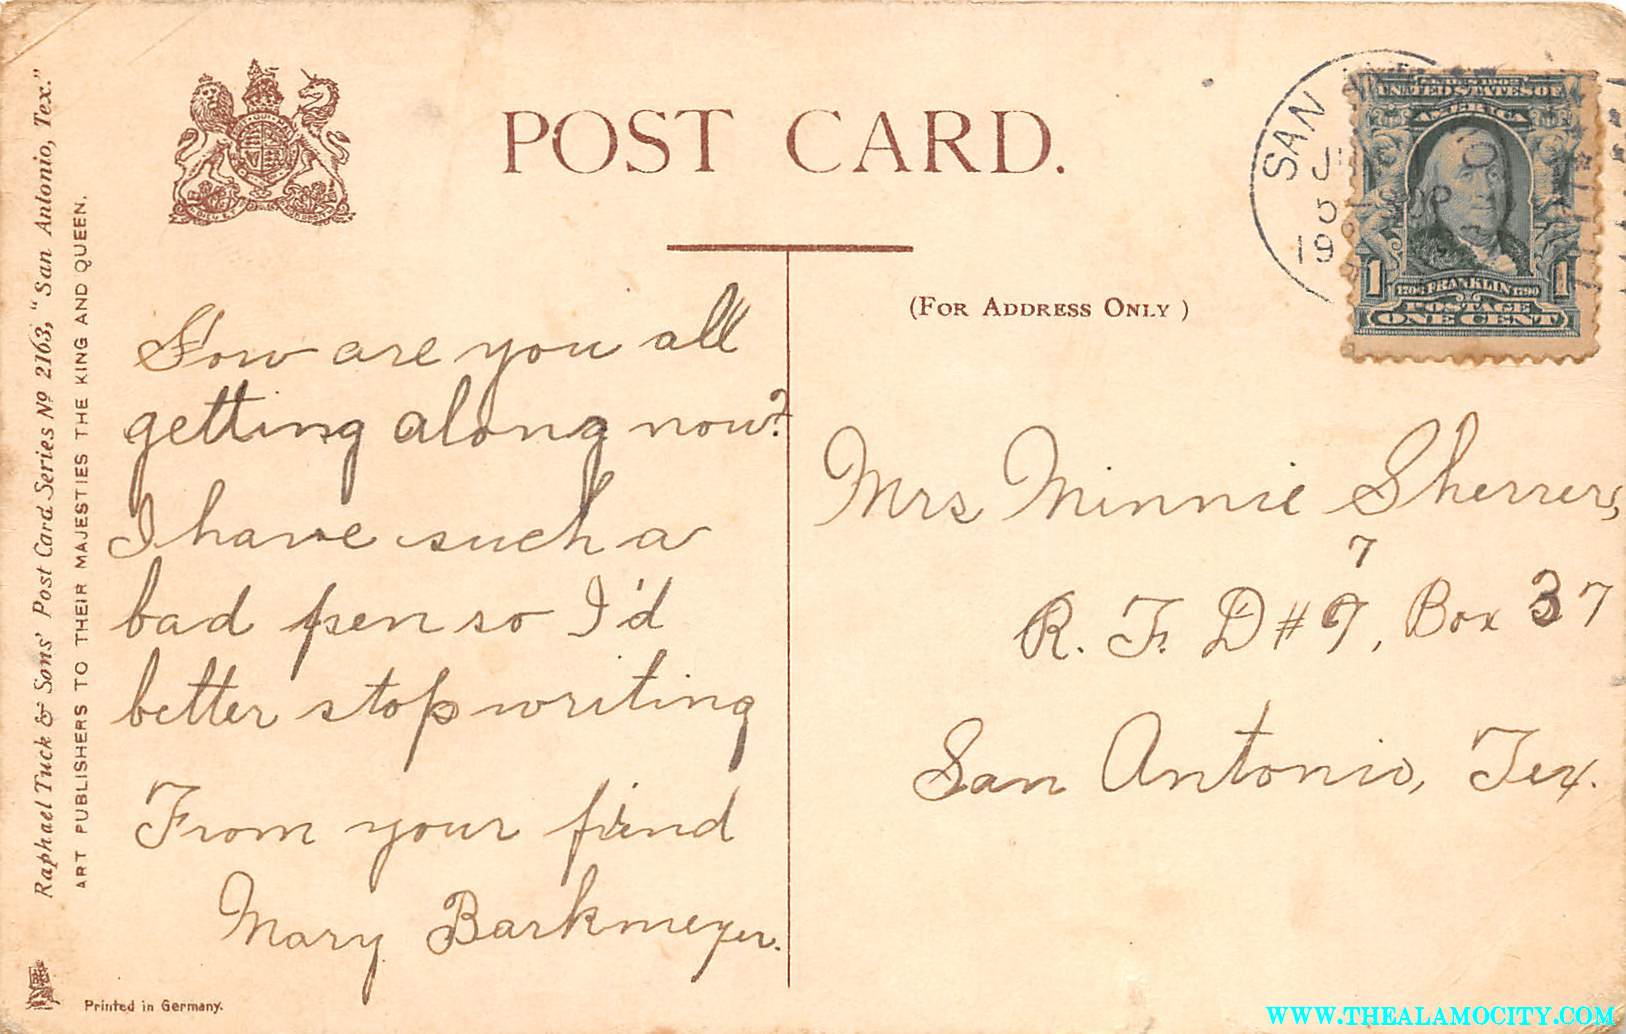 Raphael Tuck & Sons' Post Card Series No 2163, "San Antonio, Tex."
ART PUBLISHERS TO THEIR MAJESTIES THE KING AND QUEEN.
Printed in Germany.
POST CARD.
(FOR ADDRESS ONLY)
SAN
5
19
SERIES 1902
UNITED STATES OF
AMERICA
1 1
1706 FRANKLIN 1790
POSTAGE
ONE CENT
How are you all
getting along now?
I have such a
bad pen so I'd
better stop writing
From your frend
Mary Barkmeyer.
Mrs Minnie Sherrer,
7
R. F. D # 9, Box 37
San Antonio, Tex.
WWW.THEALAMOCITY.COM